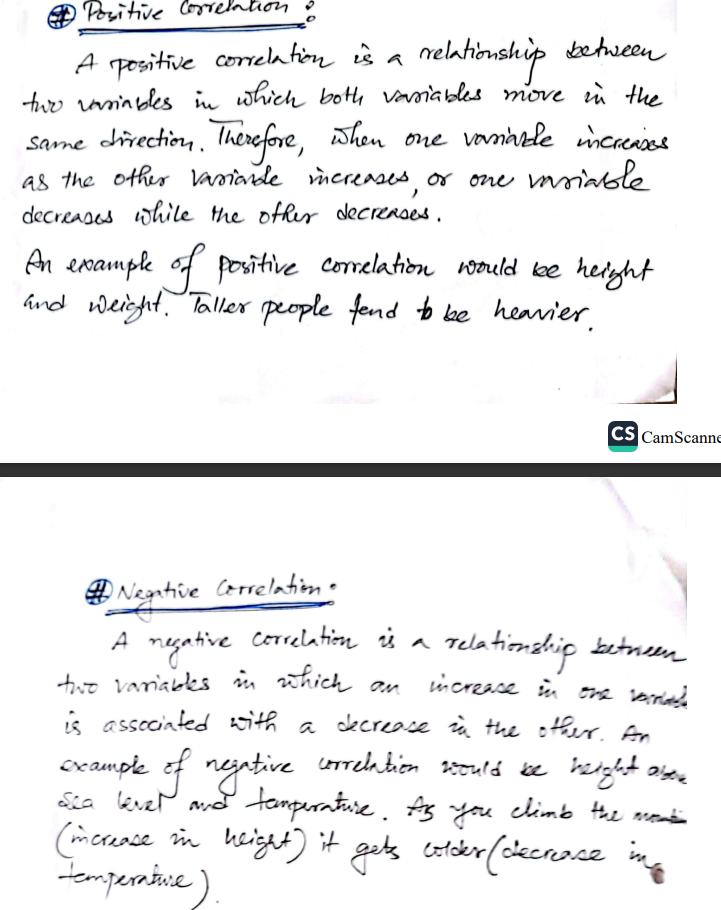 # Positive Correlation :
A positive correlation is a relationship between
two variables in which both variables move in the
same direction. Therefore, when one variable increases
as the other variable increases, or one variable
decreases while the other decreases.
An example of positive correlation would be height
and weight. Taller people tend to be heavier.
CS CamScanne
# Negative Correlation :
A negative correlation is a relationship between
two variables in which an increase in one variable
is associated with a decrease in the other. An
example of negative correlation would be height above
sea level and temperature. As you climb the
(increase in height) it gets colder (decrease in
temperature).